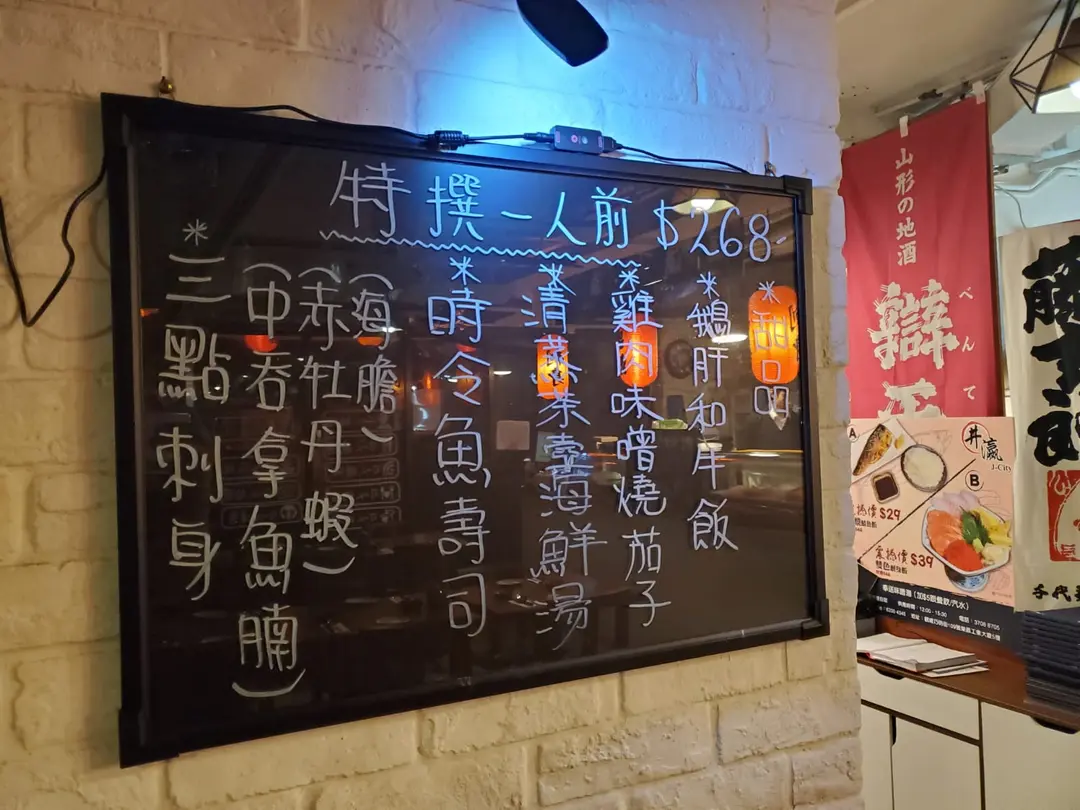 特撰一人前 $268-
*三點刺身
(中吞拿魚腩)
(赤牡丹蝦)
(海膽)
*時令魚壽司
*清蒸茶壺海鮮湯
*雞肉味噌燒茄子
*鵝肝和牛飯
*甜品
山形の地酒
辯天
べんて
藤次郎
千代
A
井瀛
J-City
B
$29
$39